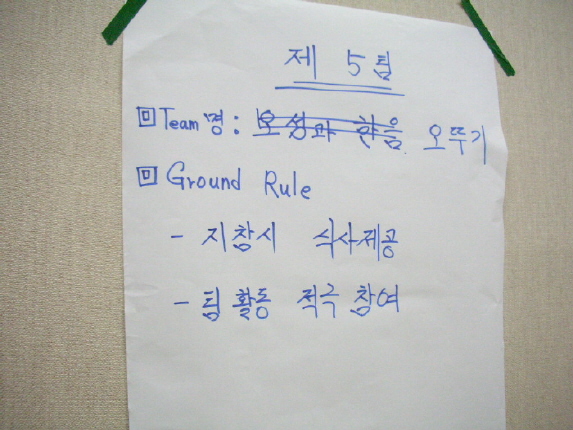 제 5팀
回 Team명: 오성과 한음 오뚜기
回 Ground Rule
- 지참시 식사제공
- 팀 활동 적극 참여